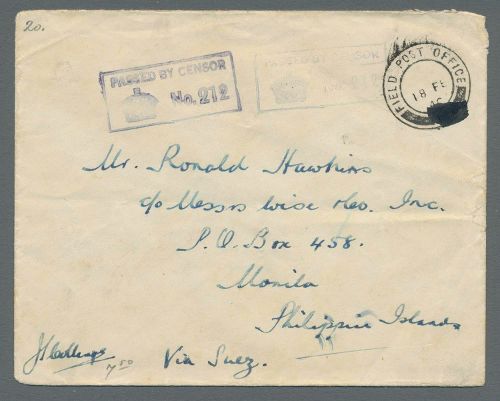 20.
PASSED BY CENSOR
No. 212
PASSED BY CENSOR
No. 212
FIELD POST OFFICE
18 FE
Mr. Ronald Hawkins
c/o Messrs Wise &Co. Inc.
P.O. Box 458.
Manila
Philippine Islands
7.50
Via Suez.